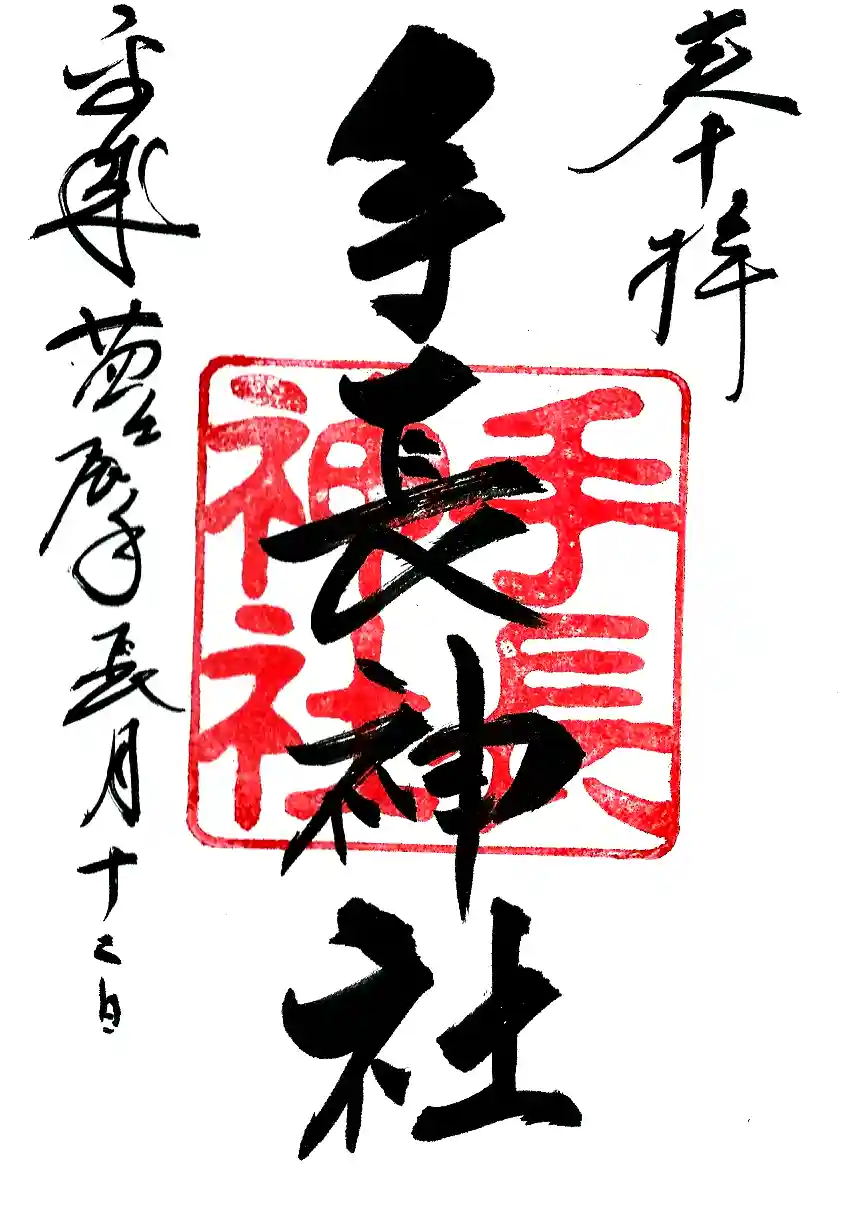 奉拝
手長神社
手長
神社
長月十二日